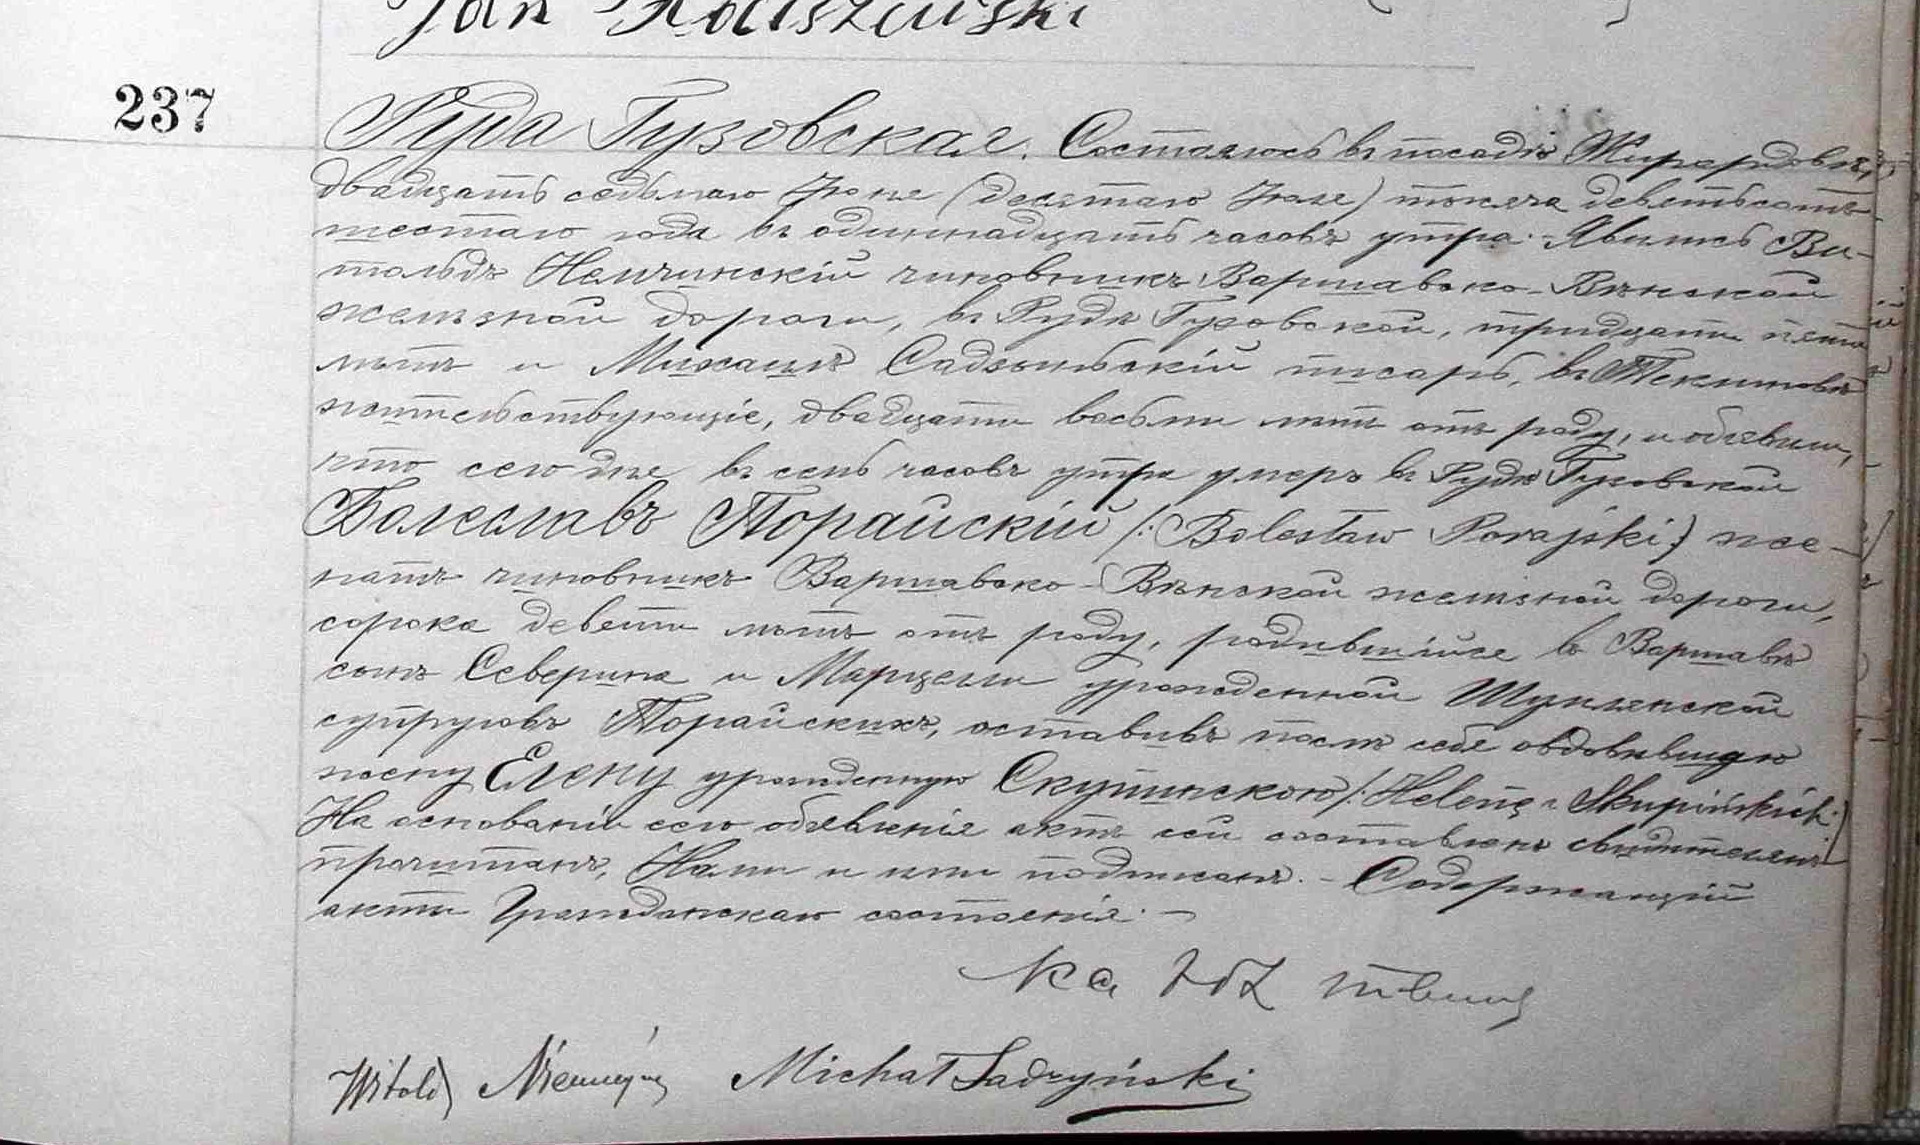 Jan Kaliszewski
237
Руда Гузовская. Состоялось въ посадѣ Жирардовѣ,
двадцать седьмаго Іюня (десятаго Іюля) тысяча девятьсотъ
шестаго года въ одиннадцать часовъ утра. Явились Ви-
тольдъ Немчинскій чиновникъ Варшавско-Вѣнской
желѣзной дороги, въ Рудѣ Гузовской, тридцати пяти
лѣтъ и Михаилъ Садзыньскій писарь, въ Теклиновѣ
жительствующіе, двадцати восьми лѣтъ отъ роду, и объявили,
что сего дня въ семь часовъ утра умеръ въ Рудѣ Гузовской
Болеславъ Порайскій (: Bolesław Porajski :) же-
натъ чиновникъ Варшавско-Вѣнской желѣзной дороги,
сорока девяти лѣтъ отъ роду, родившійся въ Варшавѣ
сынъ Северина и Марцели урожденной
супруговъ Порайскихъ, оставивъ послѣ себя овдовѣвшую
жену Елену урожденную Скупинскою (: Helenę z Skupińskich :)
На основаніи сего объявленія актъ сей составленъ свидѣтелямъ
прочитанъ, Нами и ими подписанъ. - Содержащій
акты Гражданскаго состоянія. -
Witold Michał Sadzyński